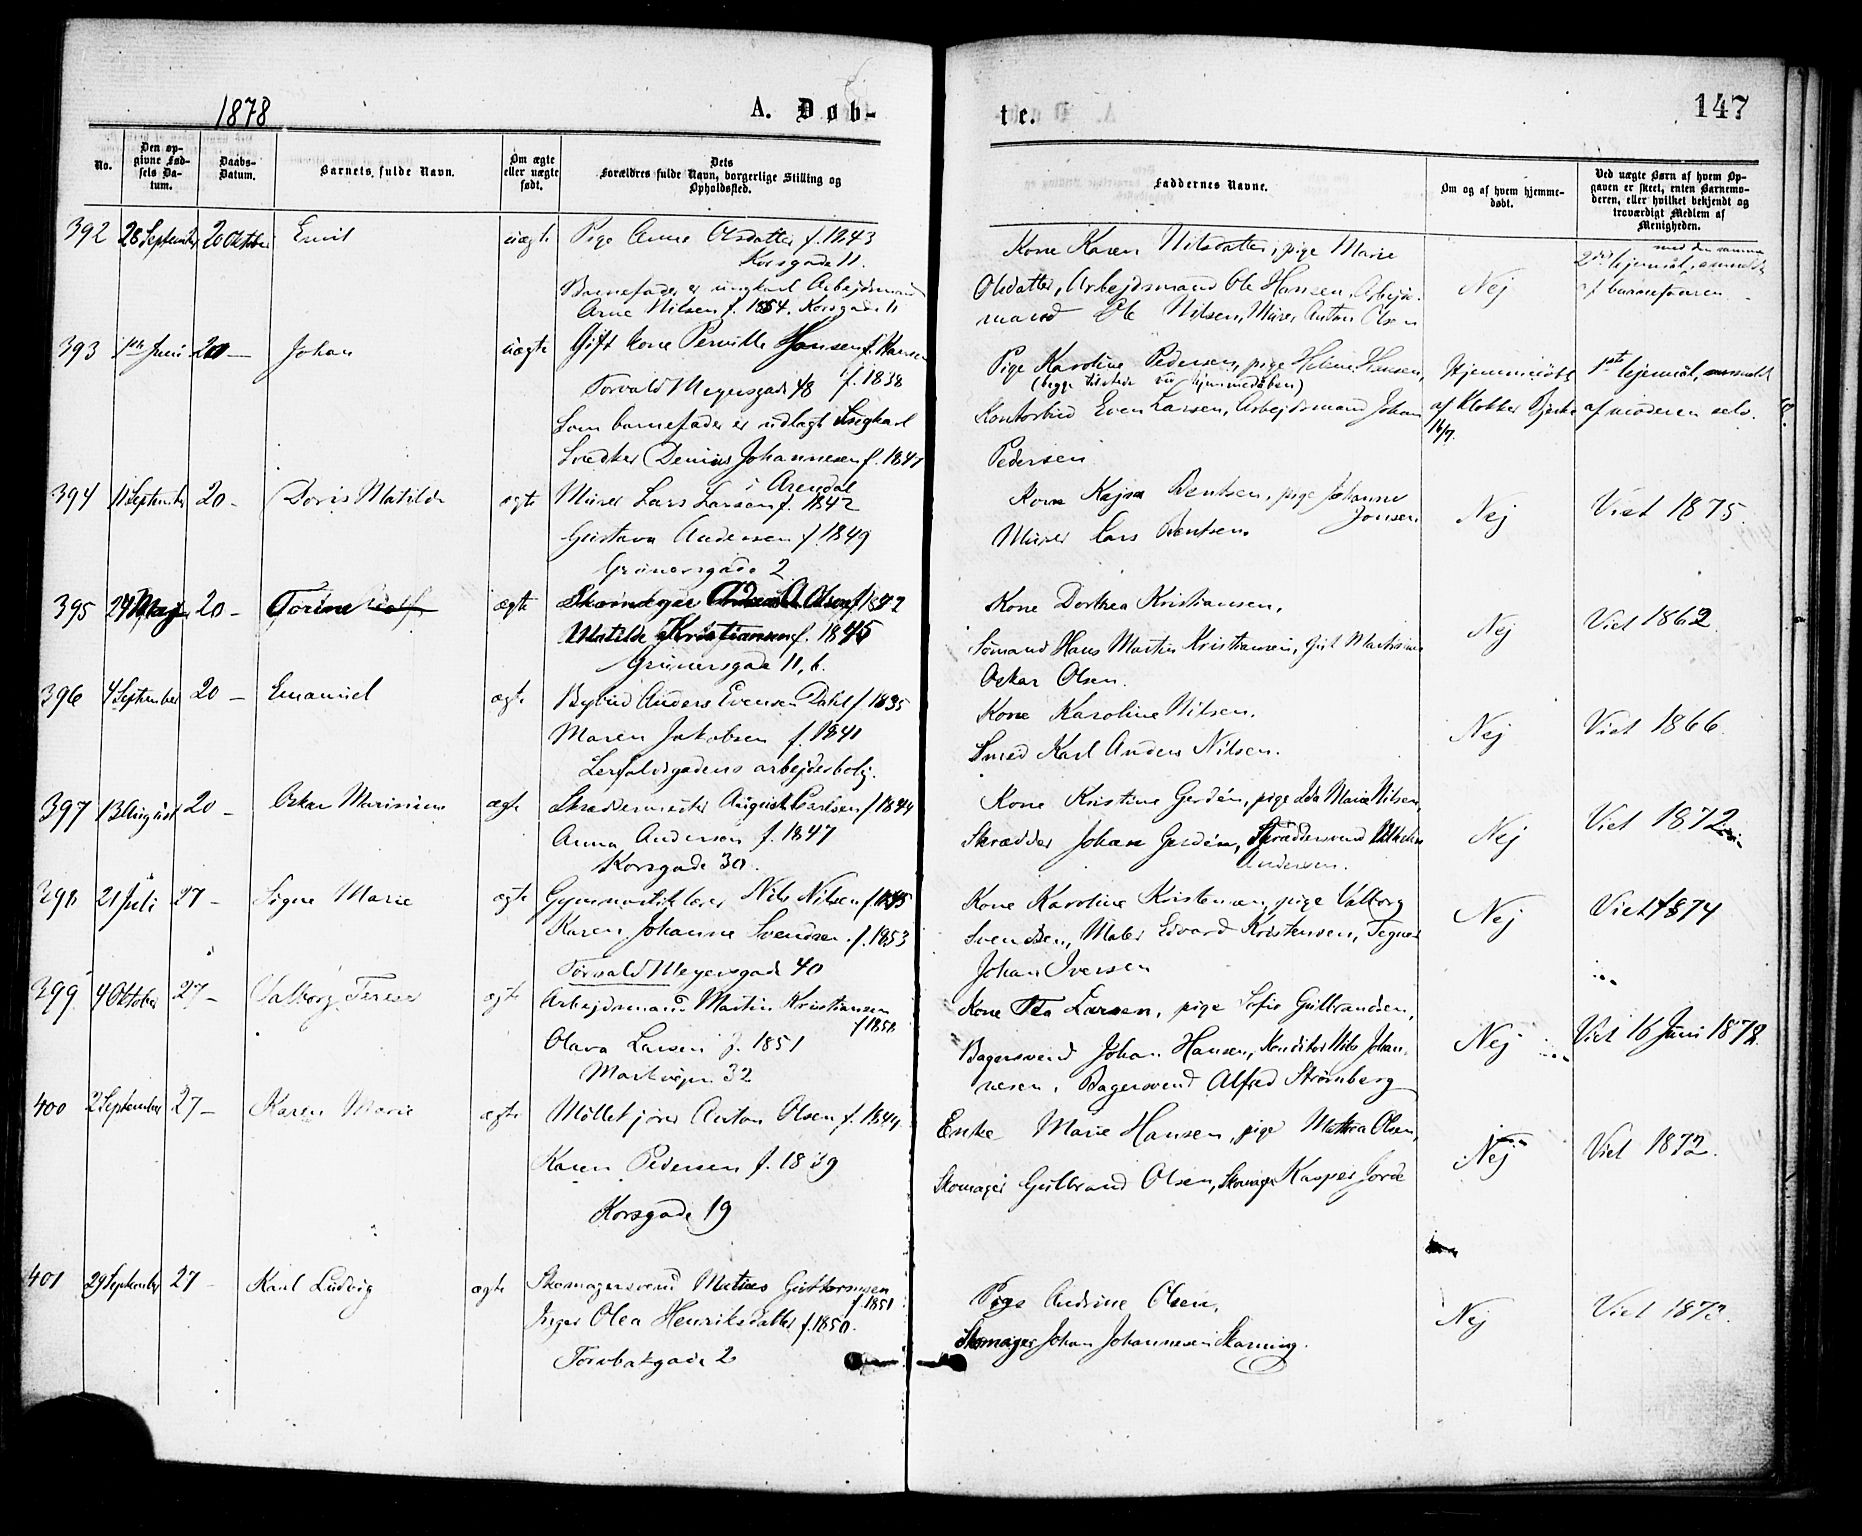 1878
A. Døb-
te.
147
No.
Den op-
givne Fød-
sels Da-
tum.
Daabs-
Datum.
Barnets fulde Navn.
Om ægte
eller uægte
født.
Dets
Forældres fulde Navn, borgerlige Stilling og
Opholdssted.
Faddernes Navne.
Om og af hvem hjemme-
døbt.
Ved uægte Børn af hvem Op-
gaven er skeet, enten Barnemo-
deren, eller hvilket bekjendt og
troværdigt Medlem af
Menigheden.
392 28 September 20 Oktober Emil uægte Pige Anne Olsdatter f. 1843
Korsgade 11.
Barnefader er ungkarl Arbejdsmand
Arne Nilsen f. 1854. Korsgade 11
Kone Karen Nilsdatter, pige Marie
Olsdatter, Arbejdsmand Ole Hansen, Arbejds-
mand Ole Nilsen, Murer Anton Olsen
Nej
med den samme
2det lejermål, anmeldt
af barnefaderen.
393 Juni 20 — Johan uægte Gift kone Pernille Hansen f. Hansen
Torvald Meyersgade 48 f. 1838
Som barnefader er udlagt Ungkarl
Snedker Johannesen f. 1847
i Arendal
Pige Karoline Pedersen, pige Helene Hansen,
(begge tilstede ved hjemmedåben)
Kontorbud Even Larsen, Arbejdsmand Johan
Pedersen
Hjemmedøbt
af Klokker Bjerke
16/7.
1ste lejermål, anmeldt
af moderen selv.
394 11 September 20 — Doris Matilde ægte Murer Lars Larsen f. 1842
Gustava Andersen f. 1849
Grünersgade 2
Kone Kajsa Bentsen, pige Johanne
Jonsen
Murer Lars Bentsen.
Nej
Viet 1875.
395 29 Maj 20 — Torine ægte Olsen f. 1842
Matilde Kristiansen f. 1845
Grünersgade 11, b.
Kone Dorthea Kristiansen,
Sømand Hans Martin Kristiansen, Gut Martinius
Oskar Olsen.
Nej
Viet 1862.
396 4 September 20 — Emanuel ægte Bybud Anders Evensen Dahl f. 1835
Maren Jakobsen f. 1841
Lerfaldsgadens arbejderbolig.
Kone Karoline Nilsen.
Smed Karl Anders Nilsen.
Nej
Viet 1866.
397 13 August 20 — Oskar Marinius ægte Skræddermester August Carlsen f. 1844
Anna Andersen f. 1847
Korsgade 30.
Kone Kristine Gerdén, pige Ida Marie Nilsen,
Skrædder Johan Gerdén, Skræddersvend Vilhelm
Andersen.
Nej
Viet 1872
398 21 Juli 27 — Signe Marie ægte Gymnastiklærer Nils Nilsen f. 1845
Karen Johanne Svendsen f. 1853
Torvald Meyersgade 40
Kone Karoline Kristensen, pige Valborg
Svendsen, Maler Edvard Kristensen, Tegner
Johan Iversen
Nej
Viet 1874
399 4 Oktober 27 — Valborg Terese ægte Arbejdsmand Martin Kristiansen
f. 1850
Olava Larsen f. 1851
Markvejen 32
Kone Larsen, pige Sofie Gulbrandsen,
Bagersvend Johan Hansen, Konditor Nils Johan-
nesen, Bagersvend Alfred Strømberg
Nej
Viet 16 Juni 1878.
400 2 September 27 — Karen Marie ægte Anton Olsen f. 1844
Karen Pedersen f. 1839
Korsgade 19
Enke Marie Hansen, pige Mathea Olsen,
Skomager Gulbrand Olsen, Skomager Kasper
Nej
Viet 1872.
401 29 September 27 — Karl Ludvig ægte Skomagersvend Matias Guttormsen
f. 1851
Inger Olea Henriksdatter f. 1850.
Torvbakgade 2
Pige Andrine Olsen,
Skomager Johan Johannesen Skarning.
Nej
Viet 1873.